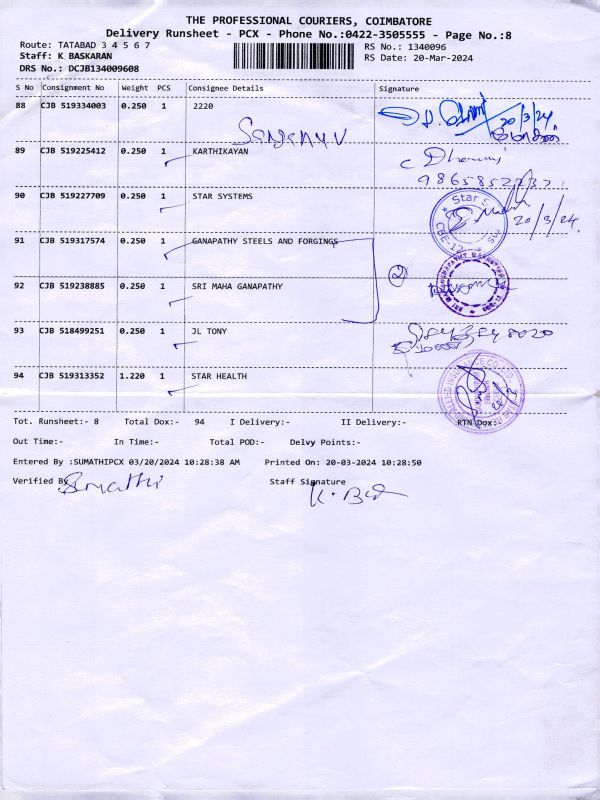 THE PROFESSIONAL COURIERS, COIMBATORE
Delivery Runsheet - PCX - Phone No.:0422-3505555 - Page No.:8
Route: TATABAD 3 4 5 6 7 RS No.: 1340096
Staff: K BASKARAN RS Date: 20-Mar-2024
DRS No.: DCJB134009608
S No Consignment No Weight PCS Consignee Details Signature
88 CJB 519334003 0.250 1 2220
20/3/24
89 CJB 519225412 0.250 1 KARTHIKAYAN
90 CJB 519227709 0.250 1 STAR SYSTEMS
Star S
20/3/24.
CBE-12
91 CJB 519317574 0.250 1 GANAPATHY STEELS AND FORGINGS
2
92 CJB 519238885 0.250 1 SRI MAHA GANAPATHY
93 CJB 518499251 0.250 1 JL TONY
94 CJB 519313352 1.220 1 STAR HEALTH
Tot. Runsheet:- 8 Total Dox:- 94 I Delivery:- II Delivery:- RTN Dox:
Out Time:- In Time:- Total POD:- Delvy Points:-
Entered By :SUMATHIPCX 03/20/2024 10:28:38 AM Printed On: 20-03-2024 10:28:50
Verified By Staff Signature